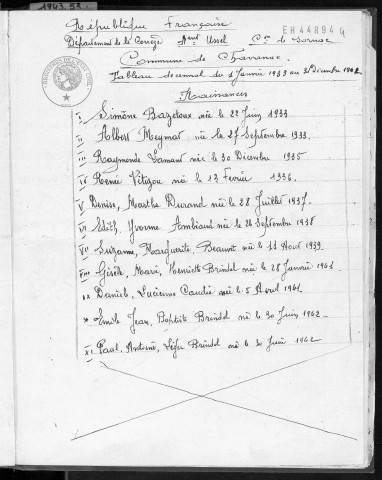 1943-52
République Française
EH44894
Département de la Corrèze Arront Ussel Con de Sornac
Commune de Chavanac
Tableau décennal du 1 Janvier 1933 au 31 Décembre 1942
Naissances
I Simone Bazetoux née le 22 Juin 1933
II Albert Meymat né le 27 Septembre 1933
III Raymonde née le 30 Décembre 1935
IV René né le 13 Février 1936
V Denise, Marthe Durand née le 28 Juillet 1937
VI Edith Yvonne née le 26 Septembre 1938
VII Suzanne, Marguerite née le 11 Août 1939
VIII Gisèle, Marie, Henriette Brindel née le 28 Janvier 1941
IX Daniel, Lucienne née le 5 Avril 1941
X Emile Jean, Baptiste Brindel né le 30 Juin 1942
XI Paul, Antoine, Brindel né le 30 Juin 1942